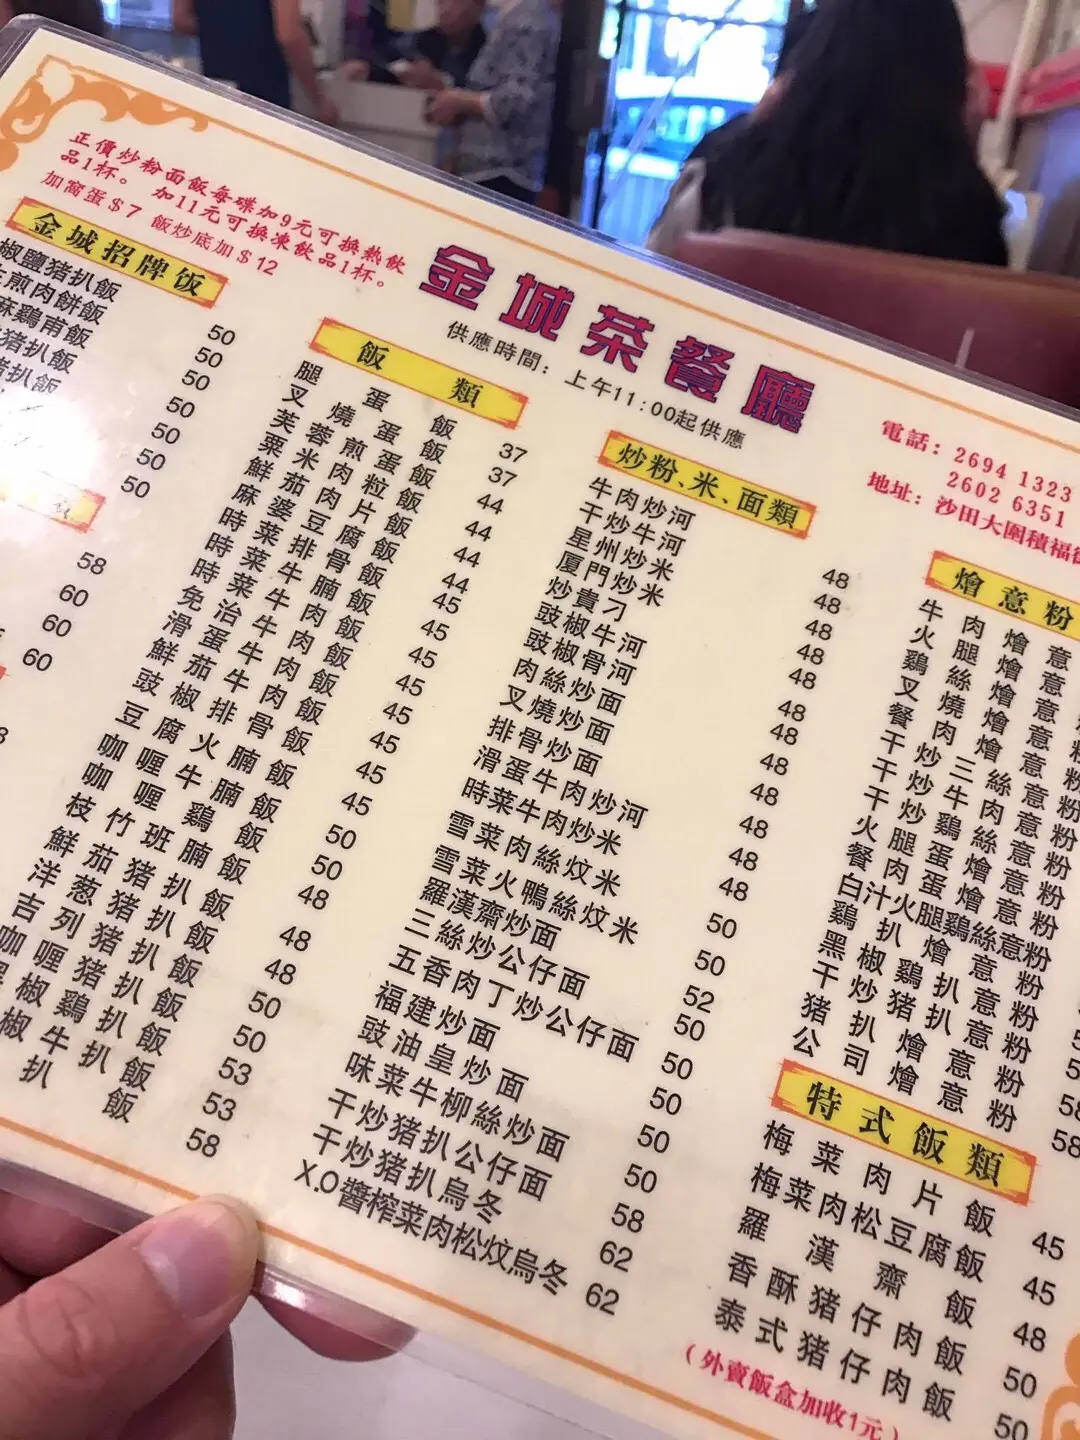 正價炒粉面飯每碟加9元可換熱飲
品1杯。 加11元可換凍飲品1杯。
加窩蛋$7 飯炒底加$12
金城茶餐廳
供應時間：上午11:00起供應
電話：2694 1323
2602 6351
地址：沙田大圍積福
金城招牌饭
椒鹽猪扒飯 50
煎肉餅飯 50
麻鷄甫飯 50
猪扒飯 50
扒飯 50
50
50
58
60
60
60
飯類
腿蛋飯 37
叉燒蛋飯 37
芙蓉煎蛋飯 44
粟米肉粒飯 44
鮮茄肉片飯 44
麻婆豆腐飯 44
時菜排骨飯 45
時菜牛腩飯 45
時菜牛肉飯 45
免治牛肉飯 45
滑蛋牛肉飯 45
鮮茄牛肉飯 45
豉椒排骨飯 45
豆腐火腩飯 45
咖喱牛腩飯 50
咖喱鷄飯 50
枝竹班腩飯 48
鮮茄猪扒飯 48
洋葱猪扒飯 48
吉列猪扒飯 50
咖喱猪扒飯 50
椒鷄扒飯 53
椒牛扒飯 53
扒飯 58
炒粉、米、面類
牛肉炒河 48
干炒牛河 48
星州炒米 48
厦門炒米 48
炒貴刁 48
豉椒牛河 48
豉椒骨河 48
肉絲炒面 48
叉燒炒面 48
排骨炒面 48
滑蛋牛肉炒河 48
時菜牛肉炒米 48
雪菜肉絲炆米 50
雪菜火鴨絲炆米 50
羅漢齋炒面 52
三絲炒公仔面 50
五香肉丁炒公仔面 50
福建炒面 50
豉油皇炒面 50
味菜牛柳絲炒面 50
干炒猪扒公仔面 58
干炒猪扒烏冬 62
X.O醬榨菜肉松炆烏冬 62
燴意粉
牛肉燴意
火腿燴意
鷄絲燴意
叉燒燴意
餐肉燴意粉
干炒三絲意粉
干炒牛肉意粉
干炒鷄絲意粉
火腿蛋燴意粉
餐肉蛋燴意粉
白汁火腿鷄絲意粉
鷄扒燴意粉
黑椒鷄扒意粉
干炒猪扒意粉
猪扒燴意粉 58
公司燴意粉 58
特式飯類
梅菜肉片飯 45
梅菜肉松豆腐飯 45
羅漢齋飯 48
香酥猪仔肉飯 50
泰式猪仔肉飯 50
（外賣飯盒加收1元）